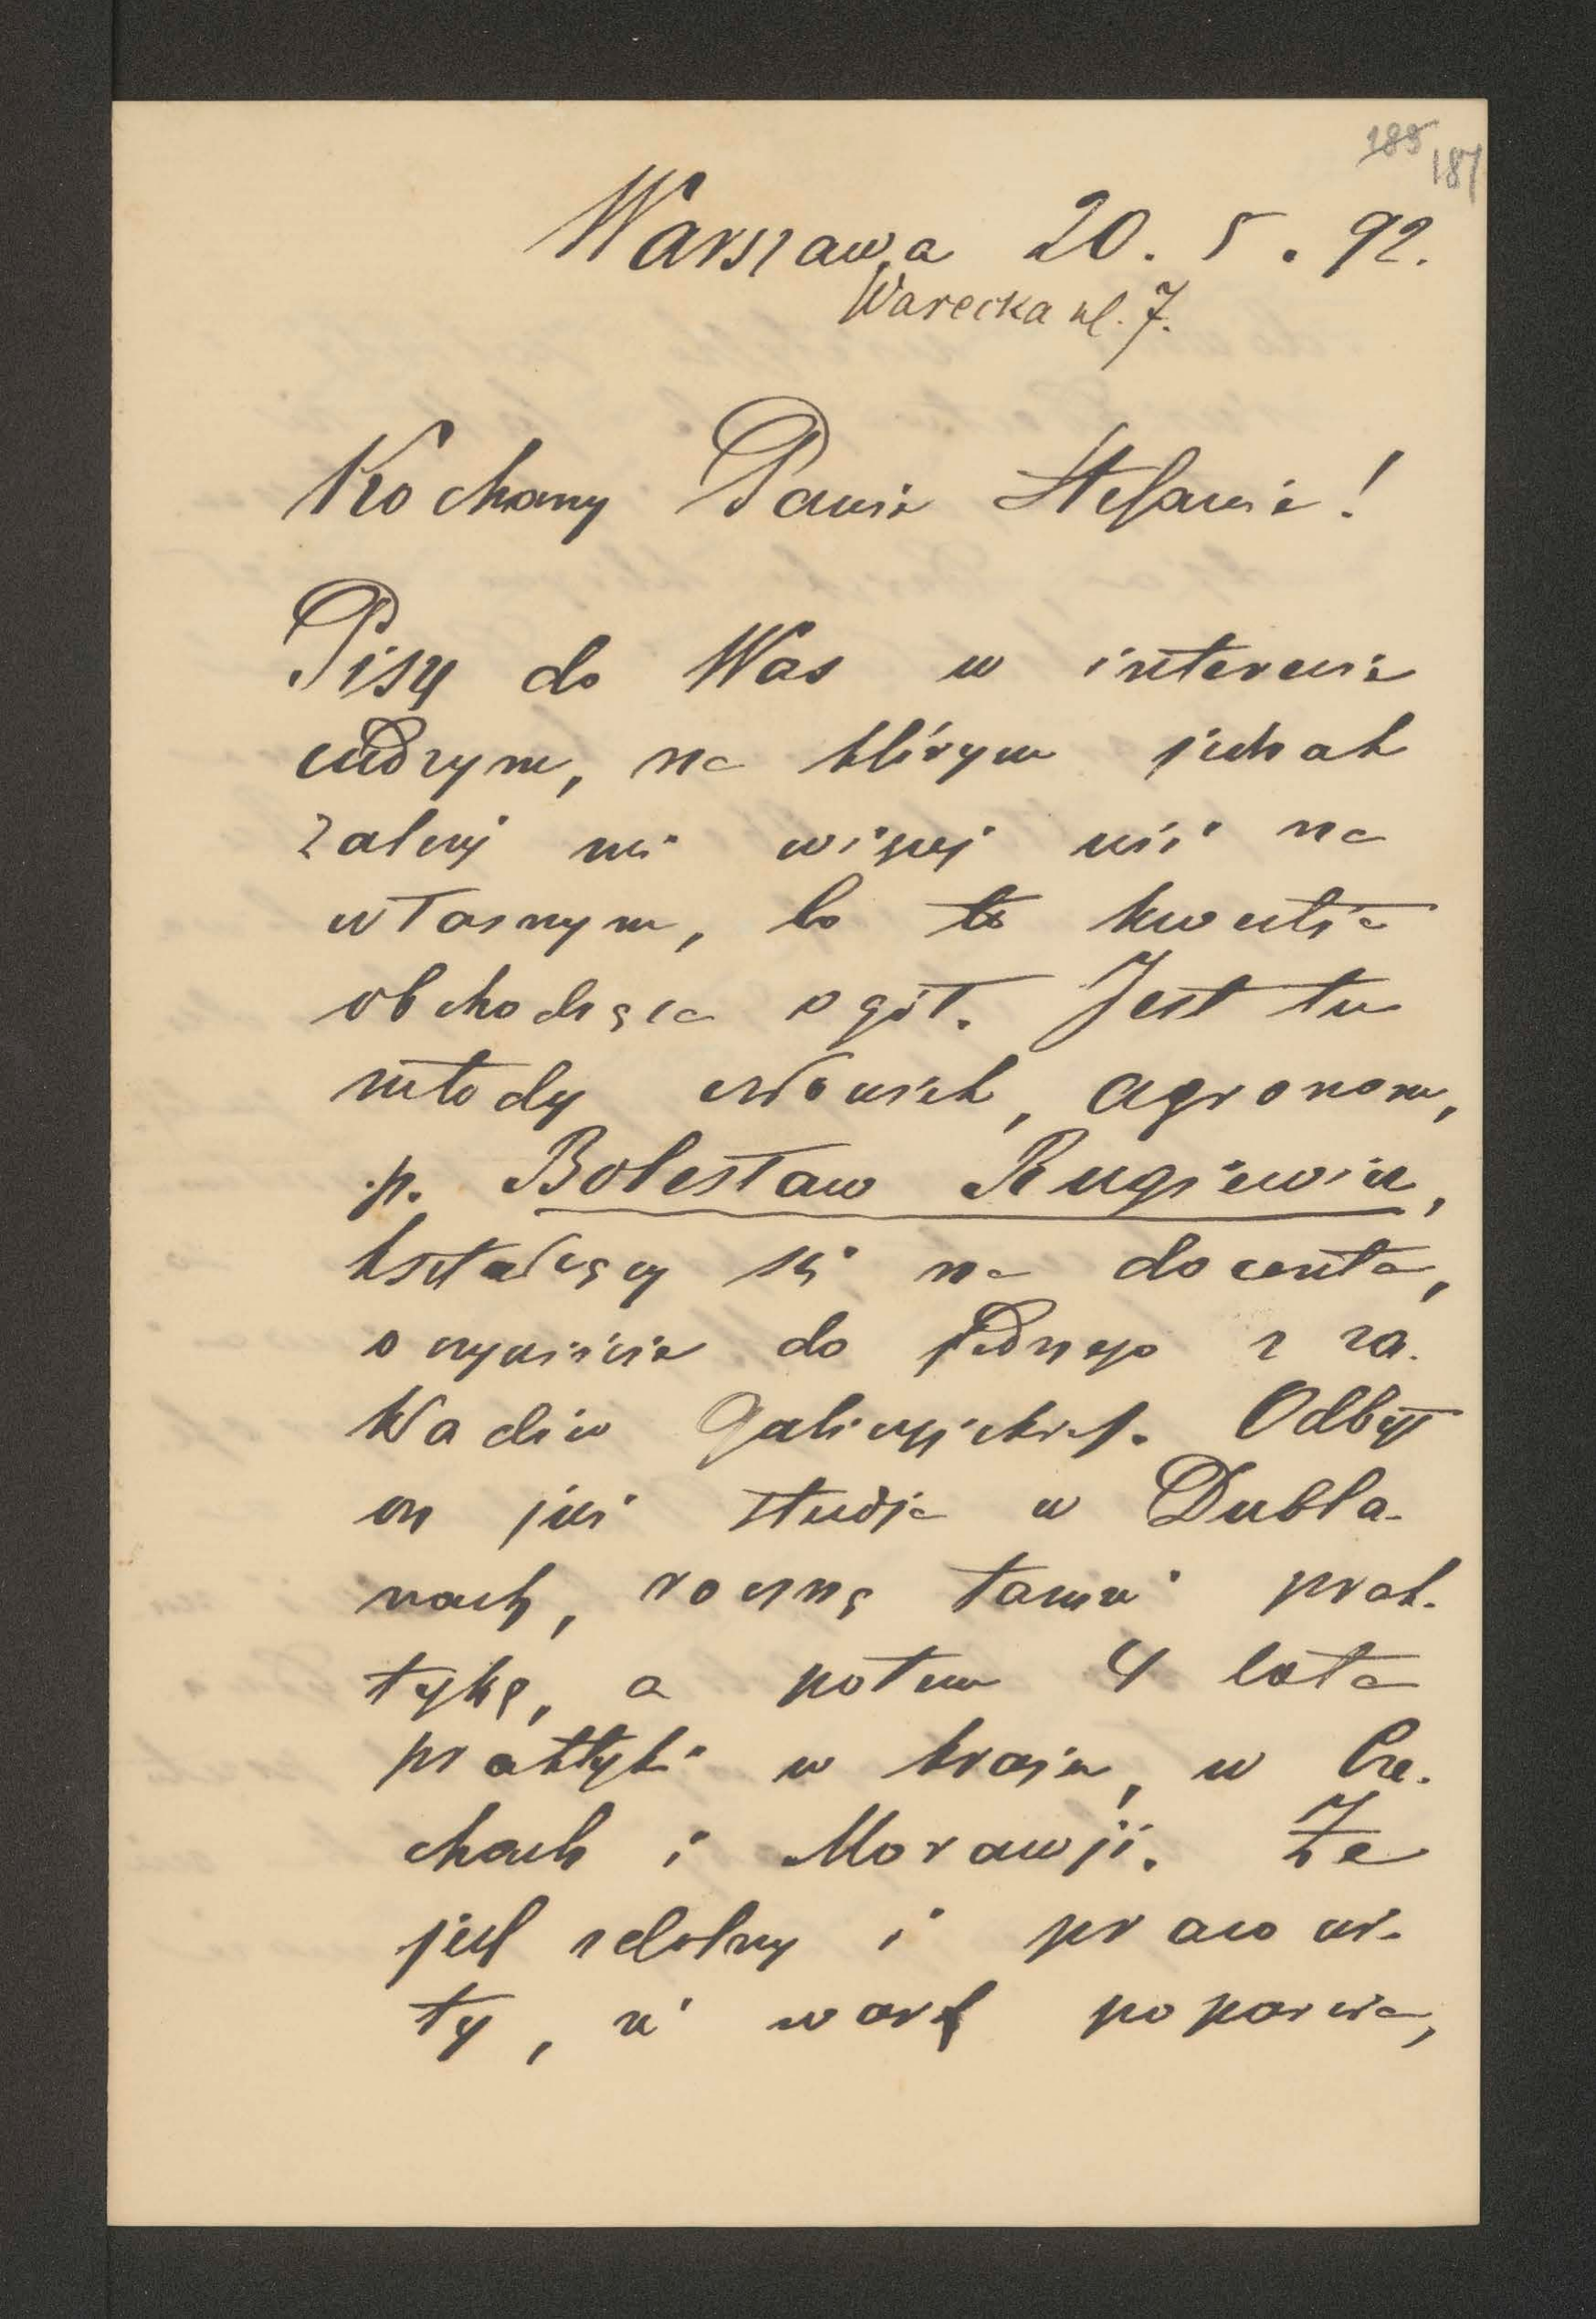 185 187
Warszawa 20. 5. 92.
Warecka ul. 7.
Kochany Panie Stefanie!
Piszę do Was w interesie
cudzym, na którym jednak
zależy mi więcej niż na
własnym, bo to kwestia
obchodząca ogół. Jest tu
młody człowiek, agronom,
p. Bolesław Rugiewicz,
kształcący się na docenta,
oczywiście do jednego z za-
kładów galicyjskich. Odbył
on już studja w Dubla-
nach, roczną tamże prak-
tykę, a potem 4 lata
praktyki w kraju, w Cze-
chach i Morawji. Że
jest zdolny i pracowi-
ty, że wart poparcia,